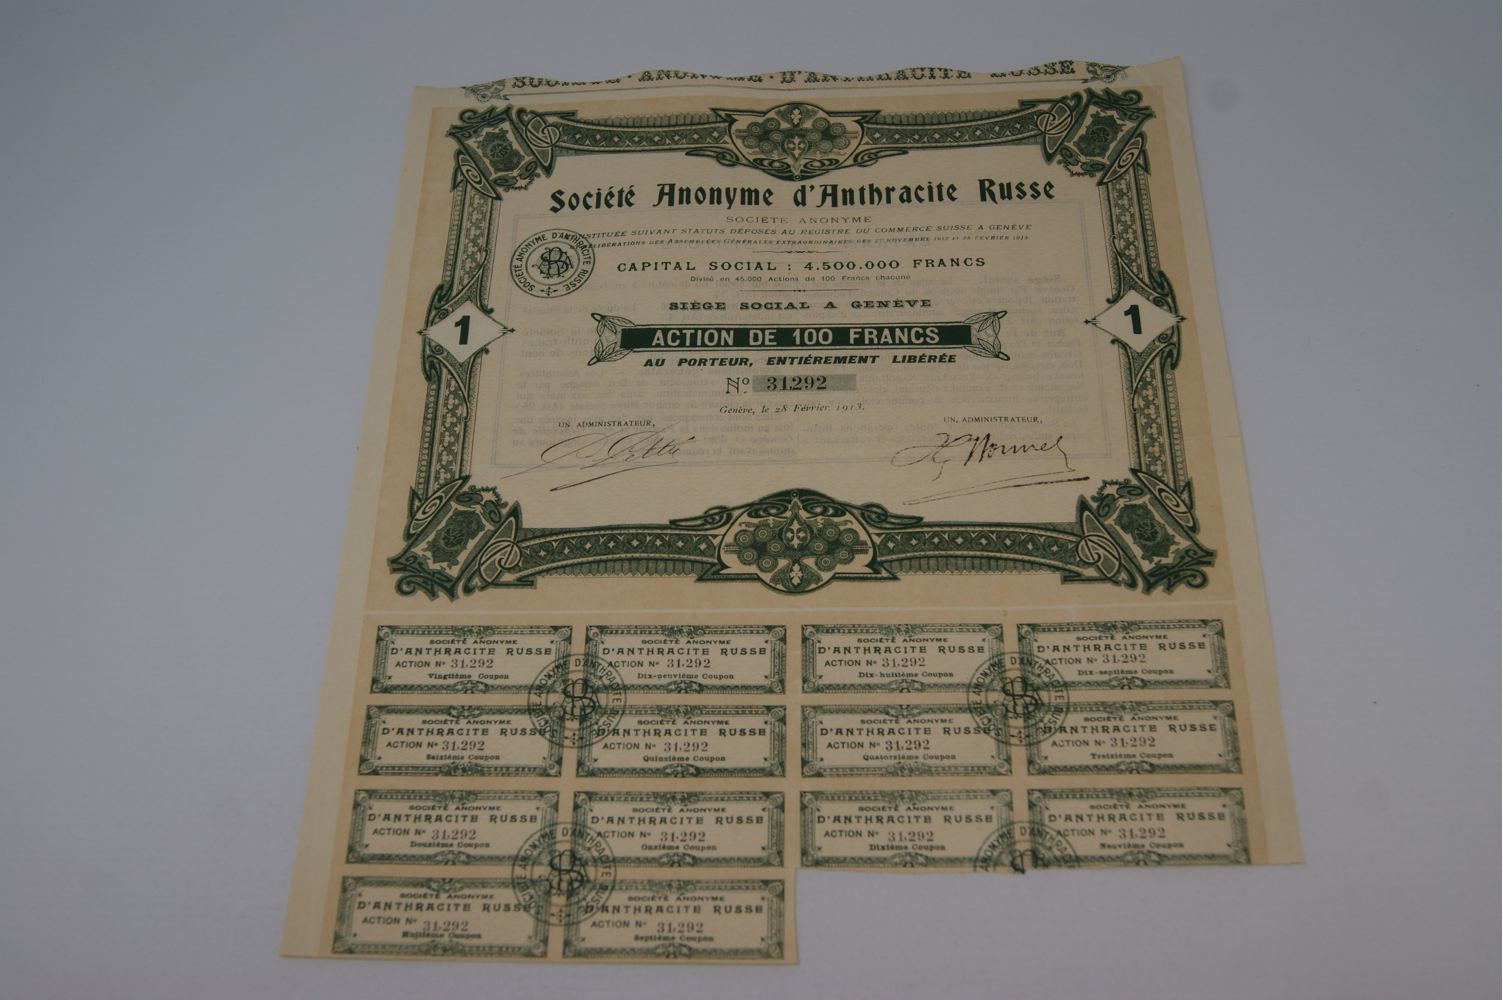 SOCIÉTÉ · ANONYME · D'ANTHRACITE RUSSE
Société Anonyme d'Anthracite Russe
SOCIÉTÉ ANONYME
CONSTITUÉE SUIVANT STATUTS DÉPOSÉS AU REGISTRE DU COMMERCE SUISSE A GENÈVE
DÉLIBÉRATIONS DES ASSEMBLÉES GÉNÉRALES EXTRAORDINAIRES DES 27 NOVEMBRE 1912 ET 28 FÉVRIER 1913
SOCIÉTÉ ANONYME D'ANTHRACITE RUSSE
CAPITAL SOCIAL : 4.500.000 FRANCS
Divisé en 45.000 Actions de 100 Francs chacune
SIÈGE SOCIAL A GENÈVE
1
ACTION DE 100 FRANCS
1
AU PORTEUR, ENTIÉREMENT LIBÉRÉE
No 31.292
Genève, le 28 Février 1913.
UN ADMINISTRATEUR,
UN ADMINISTRATEUR,
SOCIÉTÉ ANONYME
D'ANTHRACITE RUSSE
ACTION No 31.292
Vingtième Coupon
SOCIÉTÉ ANONYME
D'ANTHRACITE RUSSE
ACTION No 31.292
Dix-neuvième Coupon
SOCIÉTÉ ANONYME
D'ANTHRACITE RUSSE
ACTION No 31.292
Dix-huitième Coupon
SOCIÉTÉ ANONYME
D'ANTHRACITE RUSSE
ACTION No 31.292
Dix-septième Coupon
SOCIÉTÉ ANONYME D'ANTHRACITE RUSSE
SOCIÉTÉ ANONYME D'ANTHRACITE RUSSE
SOCIÉTÉ ANONYME
D'ANTHRACITE RUSSE
ACTION No 31.292
Seizième Coupon
SOCIÉTÉ ANONYME
D'ANTHRACITE RUSSE
ACTION No 31.292
Quinzième Coupon
SOCIÉTÉ ANONYME
D'ANTHRACITE RUSSE
ACTION No 31.292
Quatorzième Coupon
SOCIÉTÉ ANONYME
D'ANTHRACITE RUSSE
ACTION No 31.292
Treizième Coupon
SOCIÉTÉ ANONYME
D'ANTHRACITE RUSSE
ACTION No 31.292
Douzième Coupon
SOCIÉTÉ ANONYME
D'ANTHRACITE RUSSE
ACTION No 31.292
Onzième Coupon
SOCIÉTÉ ANONYME
D'ANTHRACITE RUSSE
ACTION No 31.292
Dixième Coupon
SOCIÉTÉ ANONYME
D'ANTHRACITE RUSSE
ACTION No 31.292
Neuvième Coupon
SOCIÉTÉ ANONYME D'ANTHRACITE RUSSE
ANONYME D'ANTHRA
SOCIÉTÉ ANONYME
D'ANTHRACITE RUSSE
ACTION No 31.292
Huitième Coupon
SOCIÉTÉ ANONYME
D'ANTHRACITE RUSSE
ACTION No 31.292
Septième Coupon